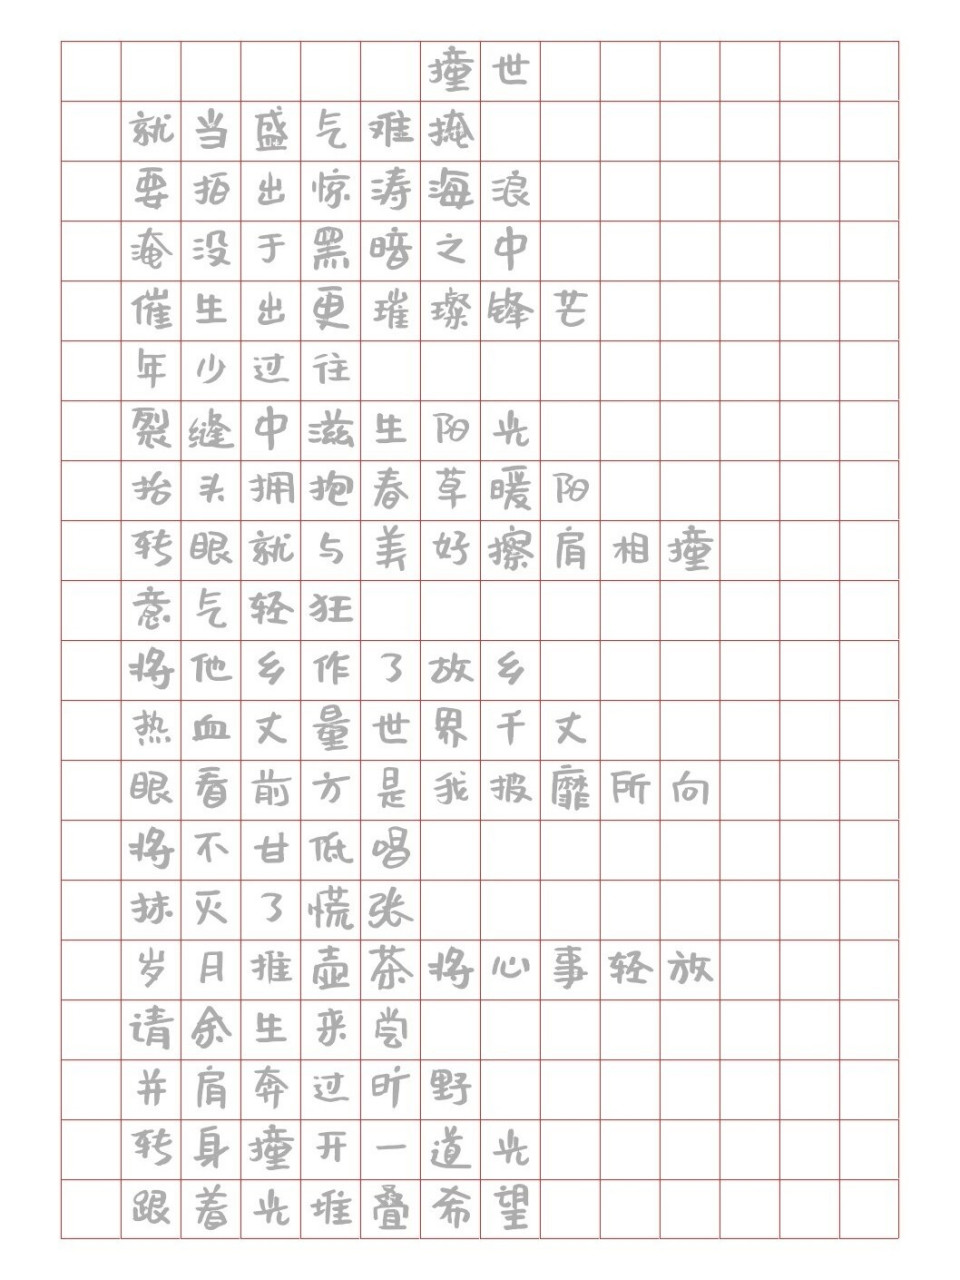 撞世
就当盛气难掩
要拍出惊涛海浪
淹没于黑暗之中
催生出更璀璨锋芒
年少过往
裂缝中滋生阳光
抬头拥抱春草暖阳
转眼就与美好擦肩相撞
意气轻狂
将他乡作了故乡
热血丈量世界千丈
眼看前方是我披靡所向
将不甘低唱
抹灭了慌张
岁月推壶茶将心事轻放
请余生来尝
并肩奔过旷野
转身撞开一道光
跟着光堆叠希望